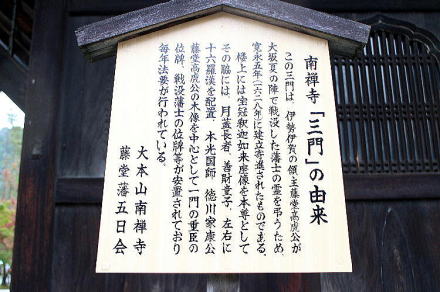 南禅寺「三門」の由来
この三門は、伊勢伊賀の領主藤堂高虎公が
大坂夏の陣で戦没した藩士の霊を弔うため
寛永五年(一六二八年)に建立寄進されたものである。
楼上には宝冠釈迦如来座像を本尊として
その脇には、月蓋長者、善財童子、左右に
十六羅漢を配置、本光国師、徳川家康公
藤堂高虎公の木像を中心として一門の重臣の
位牌、戦没藩士の位牌等が安置されており
毎年法要が行われている。
大本山南禅寺
藤堂藩五日会